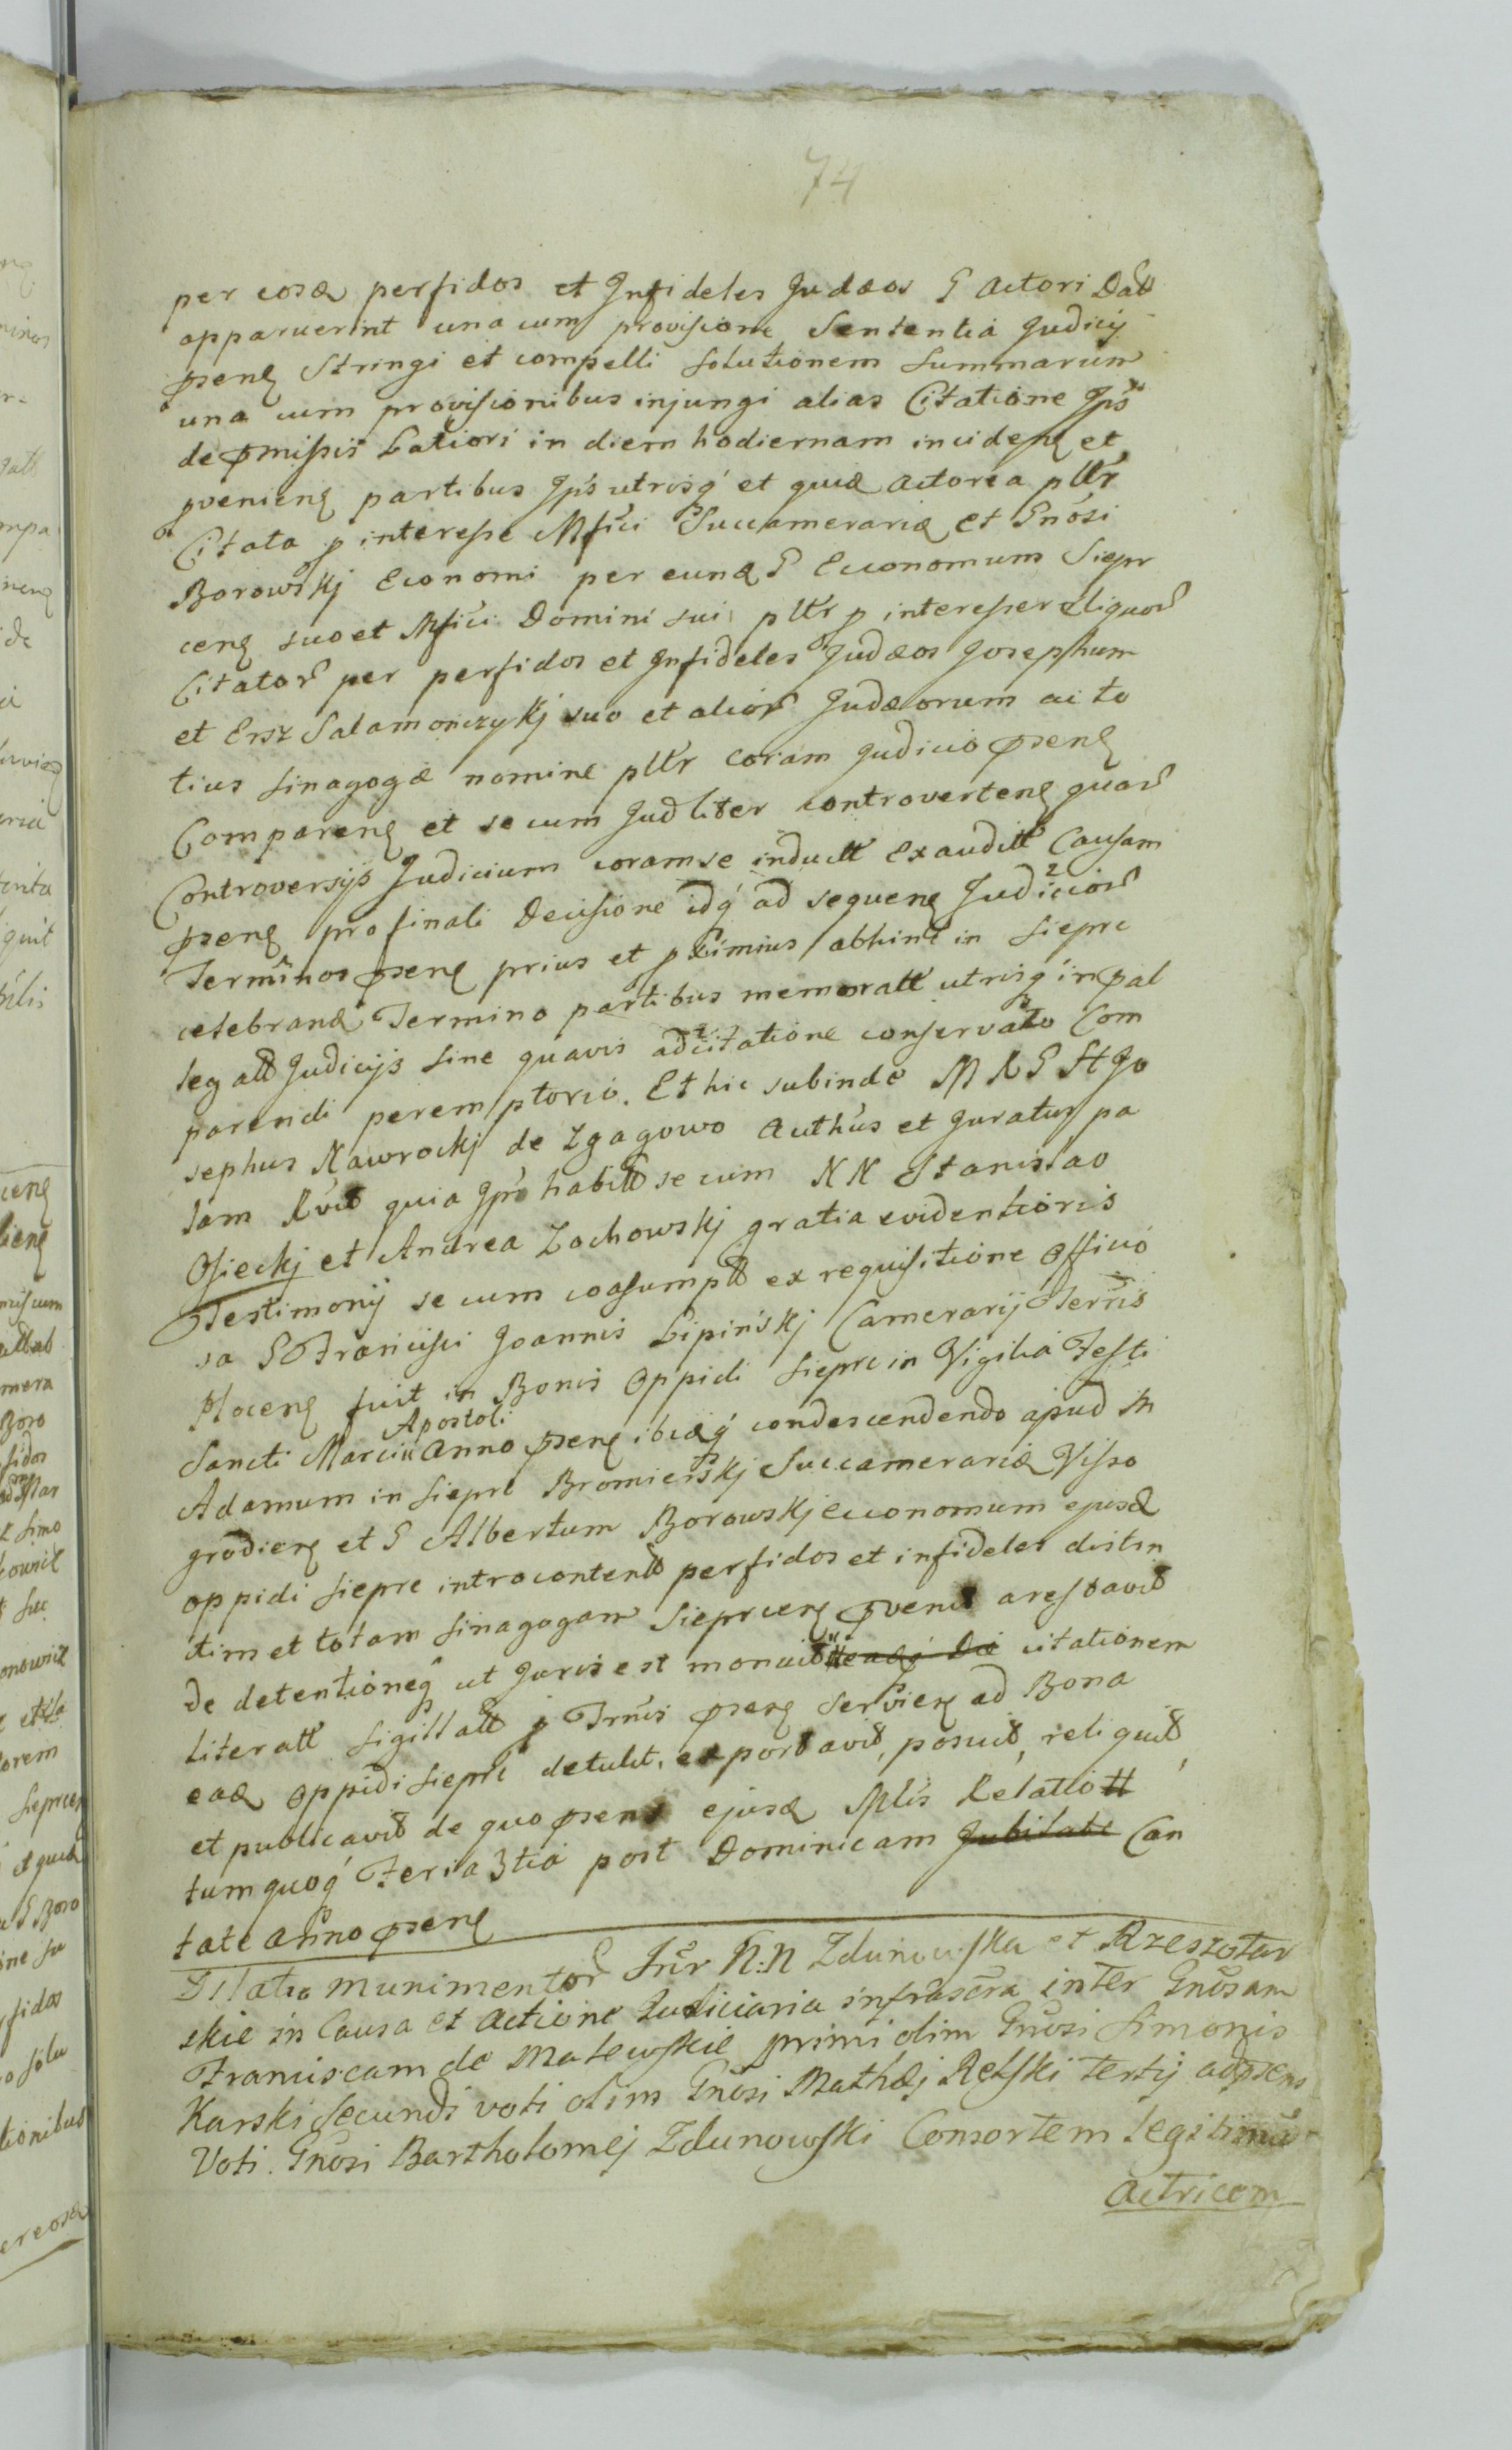 74
per eosd perfidos et Infideles Judæos G Actori Datt
apparuerint una cum provisione Sententia Judicij
psens Stringi et compelli solutionem Summarum
una cum provisionibus injungi alias Citatione Ips
de pmissis Latiori in diem hodiernam inciden et
pveniens partibus Ips utrisq et quia Actorea pttr
Citata p interesse Mfici Succamerarij et Gnosi
Borowskj Economi per eund G Economum Siepr
cens suo et Mfici Domini sui pttr p interesse reliquor
Citator per perfidos et Infideles Judæos Josephum
et Ersz Salamonczykj suo et alior Judæorum ac to
tius Sinagogæ nomine pttr coram Judicio psens
Comparens et secum Judliter controvertens quor
Controversijs Judicium coram se inductt Exauditt Causam
psens pro finali Decisione idq ad sequens Judicior
Terminos psens prius et pximius abhinc in Siepre
celebrand Termino partibus memoratt utrisq in pal
legatt Judicijs sine quavis adcitatione conservato Com
parendi peremptorio. Et hic subinde M R G St Jo
sephus Nawrockj de Zgagowo Authus et Juratus pa
lam Rvit quia Ipse habitt secum NN Stanislao
Osieckj et Andrea Zochowskj gratia evidentioris
Testimonij secum coasumptt ex requisitione officio
sa GD Francisci Joannis Lipinskj Camerarij Terris
Plocens fuit in Bonis Oppidi Siepre in Vigilia Festi
Apostoli
Sancti Marci Anno psens ibidq condescendendo apud M
Adamum in Siepre Bromierskj Succamerariu Visso
grodiens et G Albertum Borowskj economum ejusd
oppidi Siepre introcontentt perfidos et infideles distin
ctim et totam Sinagogam Sieprcens pvenit arestavit
de detentioneq ut Juris est monuit citationem
literatt sigillatt p Trnis psens serviens ad Bona
ead oppidi Siepre detulit, exportavit, posuit, reliquit,
et publicavit de quo psens ejusd Mlis Relatio tt
tum quoq Feria 3tia post Dominicam Jubilate Can
tate Anno psens
Illatio munimentor Inr N:N Zdunowska et Rzeszotar
skie in Causa et Actione Judiciaria infrascra inter Gnosam
Franciscam de Malewskie primi olim Gnosi Simonis
Karski Secundi voti olim Gnosi Mathæj Relski tertij adpsens
Voti. Gnosi Bartholomej Zdunowski Consortem legitima
Actricem